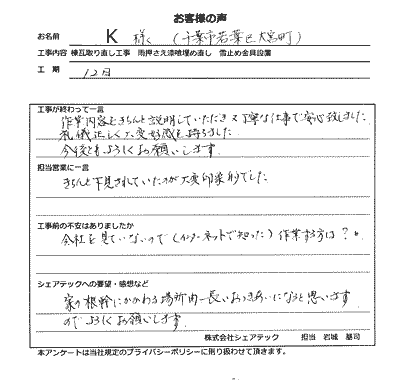 お客様の声
お名前 K 様 (千葉市若葉区大宮町)
工事内容 棟瓦取り直し工事 雨押さえ漆喰埋め直し 雪止め金具設置
工期 12日
工事が終わって一言
作業内容をきちんと説明していただき又丁寧な仕事で安心致しました
礼儀正しく大変好感を持ちました
今後ともよろしくお願いします
担当営業に一言
きちんと下見されていたのが大変印象的でした
工事前の不安はありましたか
会社を見ていないので(インターネットで知った)作業する方は?
シェアテックへの要望・感想など
家の根幹にかかわる場所 長いおつきあいになると思います
のでよろしくお願いします
株式会社シェアテック 担当 岩城 基司
本アンケートは当社規定のプライバシーポリシーに則り扱わせて頂きます。